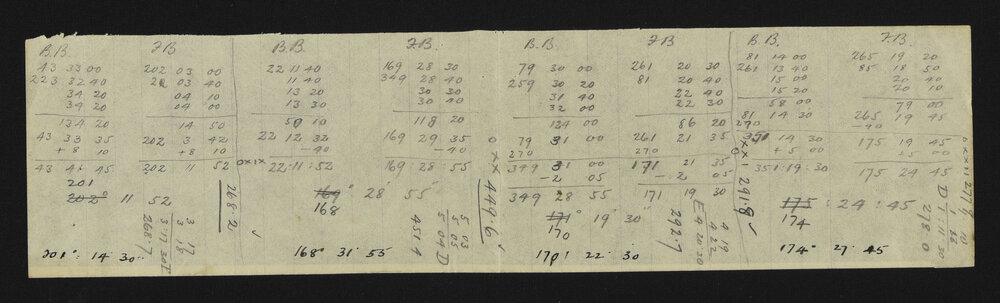 B.B. F.B.
43 33 00 202 03 00
223 32 40 22 03 40
34 20 04 10
34 20 04 00
134 20 14 50
43 33 35 202 3 42
+ 8 10 + 8 10
43 41 45 202 11 52
201
202° 11 52
201° 14' 30"
3 17
3 18
3 17 30 I
268.7
0XIX
268.2
B.B. F.B.
22 11 40 169 28 30
11 40 349 28 40
13 20 30 30
13 30 30 40
50 10 118 20
22 12 32 169 29 35
- 40 - 40
22:11:52 169:28:55
169° 28' 55"
168
168° 31' 55"
5 03
5 05
5 04 D
451.4
0 X X
449.6 ✓
B.B. F.B.
79 30 00 261 20 30
259 30 20 81 20 40
31 40 22 40
32 00 22 30
124 00 86 20
79 31 00 261 21 35
270 270
349 31 00 171 21 35
- 2 05 - 2 05
349 28 55 171 19 30
171° 19' 30"
170
170° 22' 30"
4 19
4 22
E 4 20 30
292.7
0XXI
291.8 ✓
B.B. F.B.
81 14 00 265 19 20
261 13 40 85 18 50
15 00 20 40
15 20 20 10
58 00 79 00
81 14 30 265 19 45
270 - 90
351 14 30 175 19 45
+ 5 00 + 5 00
351:19:30 175 24 45
175:24:45
174
174° 27' 45
0XXII
277.9
D 1 11 30
278.0